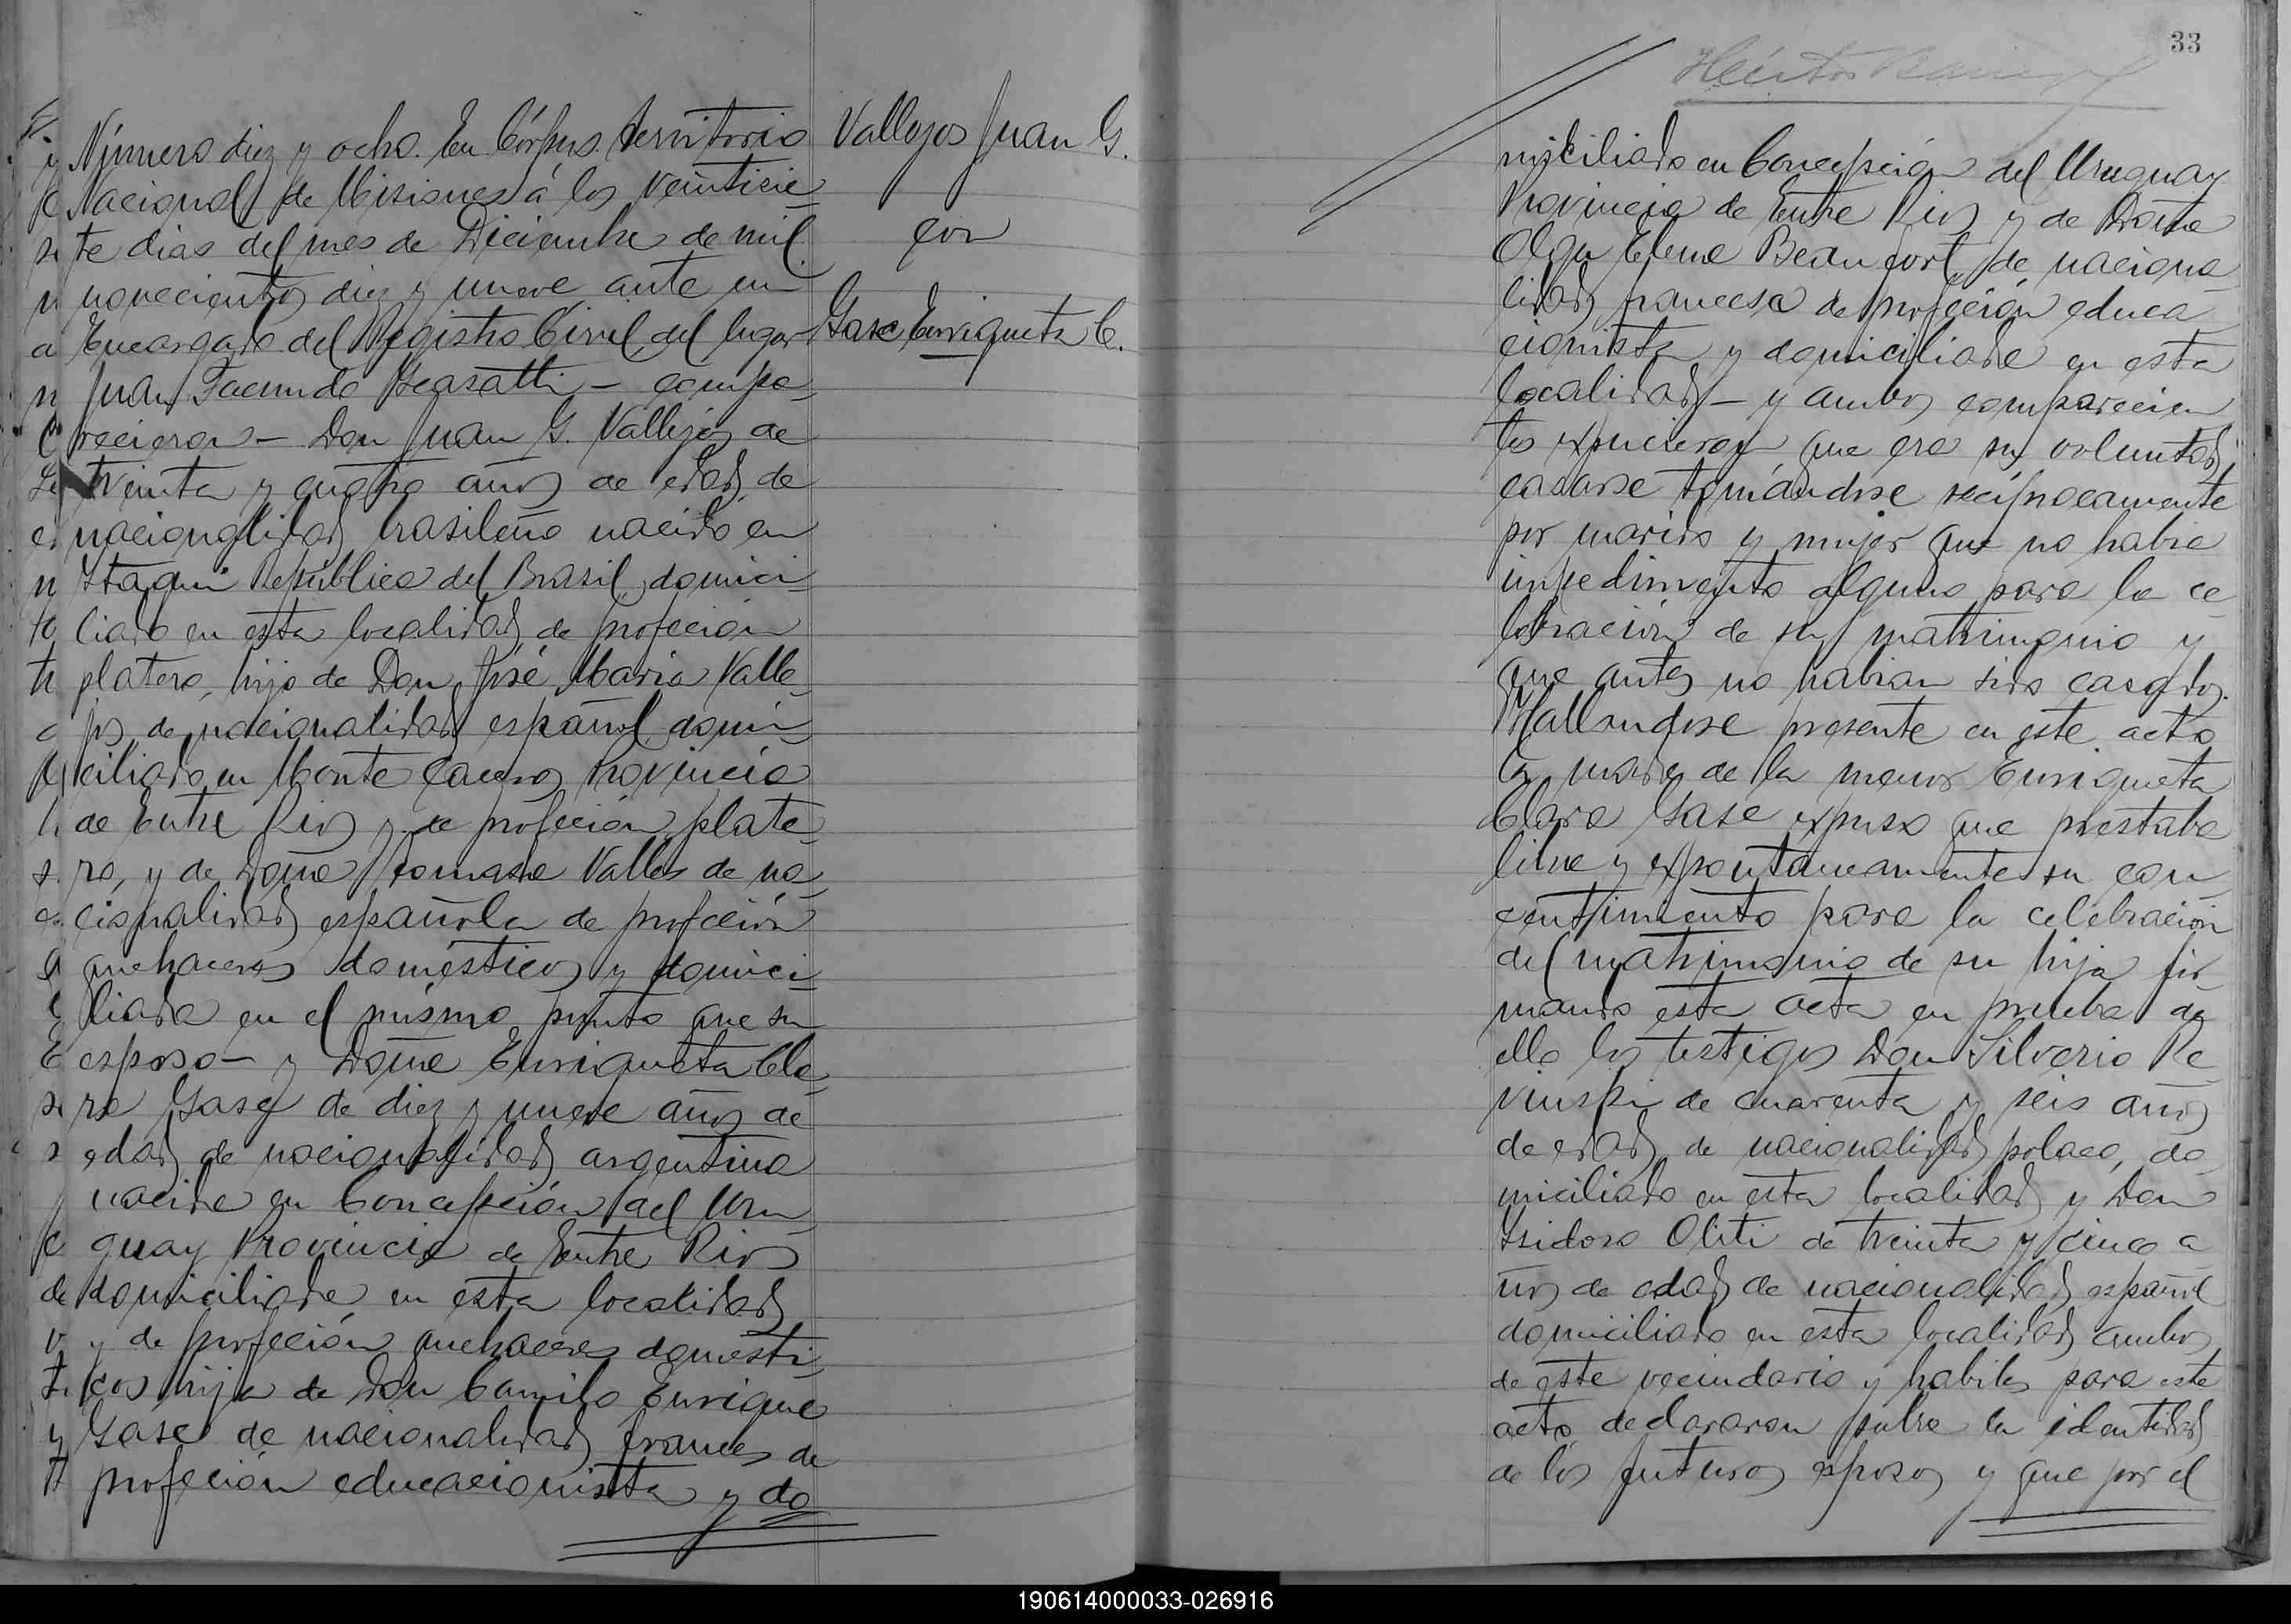 Número diez y ocho. En Córpus. Territorio
Nacional de Misiones á los veinticie-
te dias del mes de Diciembre de mil
novecientos diez y nueve ante mi
Encargado del Registro Civil del lugar
Juan Facundo - compa-
recieron - Don Juan G. Vallejos de
treinta y cuatro años de edad, de
nacionalidad brasileño nacido en
Itaqui República del Brasil, domici-
liado en esta localidad de profeción
platero, hijo de Don José Maria Valle-
jos, de nacionalidad español domi-
ciliado en Monte Caceros Provincia
de Entre Rios y de profeción plate-
ro, y de Doña Tomasa Valles de na-
cionalidad española de profeción
quehaceres domésticos y domici-
liada en el mismo punto que su
esposo - y Doña Enriqueta Cla-
ra Gase de diez y nueve años de
edad de nacionalidad argentina
nacida en Concepción del Uru-
guay Provincia de Entre Rios
domiciliada en esta localidad
y de profeción quehaceres domésti-
cos hija de Don Camilo Enrique
Gase de nacionalidad frances de
profeción educacionista y do
Vallejos Juan G.
con
Gase Enriqueta C.
33
Héctor
miciliado en Concepción del Uruguay
Provincia de Entre Rios y de Doña
Olga Elena Beaufort, de naciona-
lidad francesa de profeción educa-
cionista y domiciliada en esta
localidad - y ambos comparecien-
tes expucieron que era su voluntad
casarse tomándose recíprocamente
por marido y mujer que no habia
impedimento alguno para la ce-
lebración de su matrimonio y
que antes no habian sido casados.
Hallandose presente en este acto
la madre de la menor Enriqueta
Clara Gase expuso que prestaba
libre y expontaneamente su con-
centimiento para la celebración
del matrimonio de su hija fir-
mando esta acta en prueba de
ello los testigos Don Silverio Re-
vinski de cuarenta y seis años
de edad de nacionalidad polaco, do-
miciliado en esta localidad y Don
Isidoro Oliti de treinta y cinco a-
ños de edad, de nacionalidad español
domiciliado en esta localidad ambos
de este vecindario y habiles para este
acto declararon sobre la identidad
de los futuros esposos y que por el
190614000033-026916